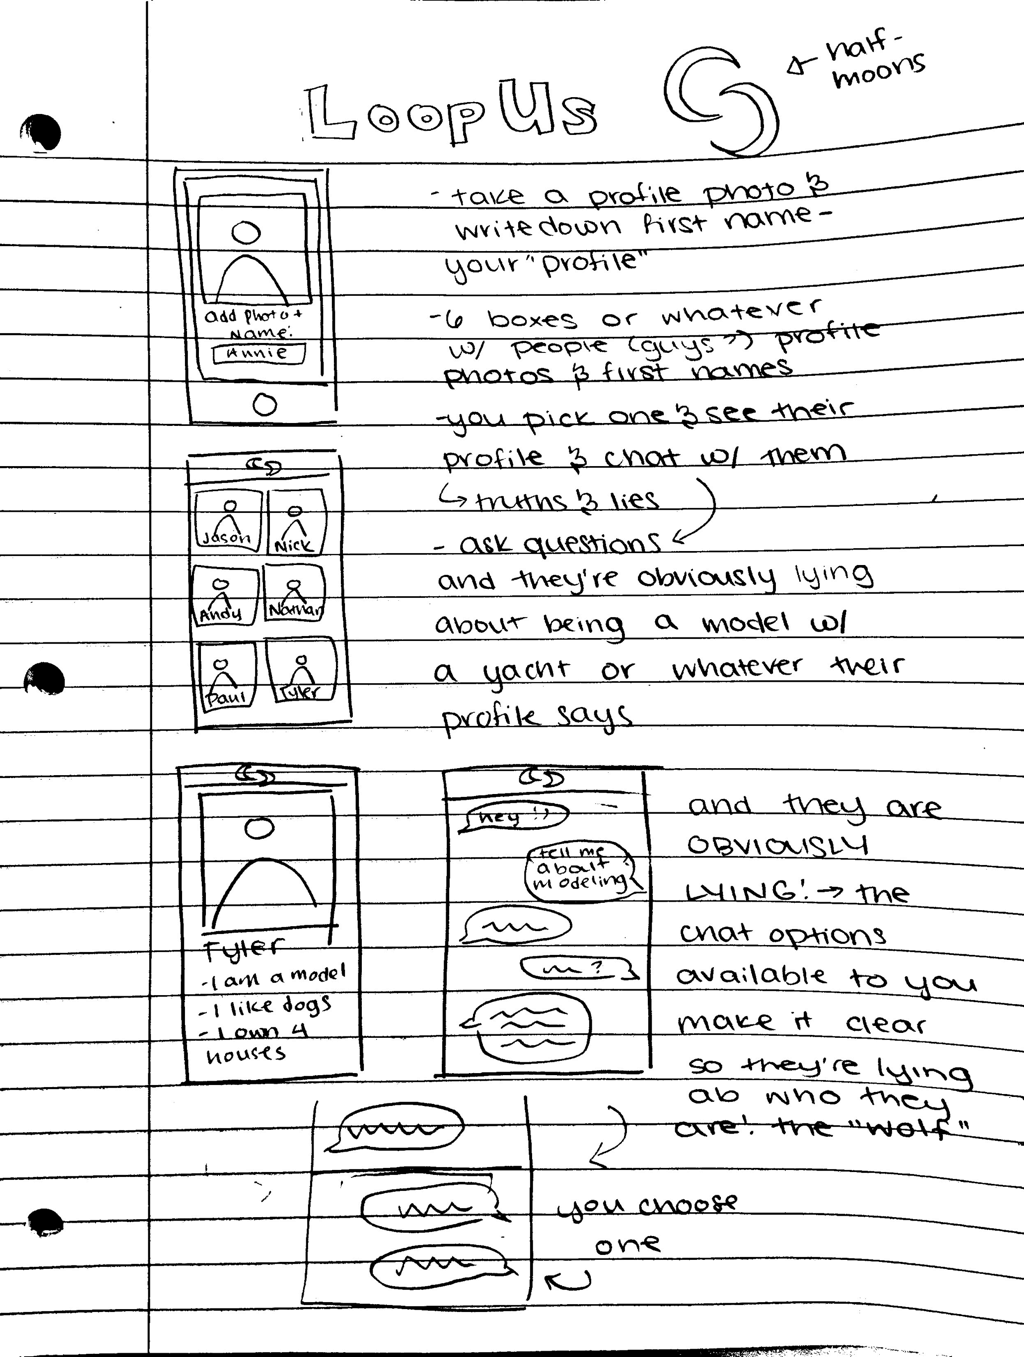 LoopUs
half-
moons
- take a profile photo &
write down first name -
your "profile"
add photo +
name:
Annie
- 6 boxes or whatever
w/ people (guys??) profile
photos & first names
- you pick one & see their
profile & chat w/ them
↳ truths & lies
- ask questions
and they're obviously lying
about being a model w/
a yacht or whatever their
profile says
Jason
Nick
Andy
Nathan
Paul
Tyler
Tyler
- I am a model
- I like dogs
- I own 4
houses
hey !:)
tell me
about
modeling
?
and they are
OBVIOUSLY
LYING! → the
chat options
available to you
make it clear
so they're lying
ab who they
are! the "wolf"
you choose
one